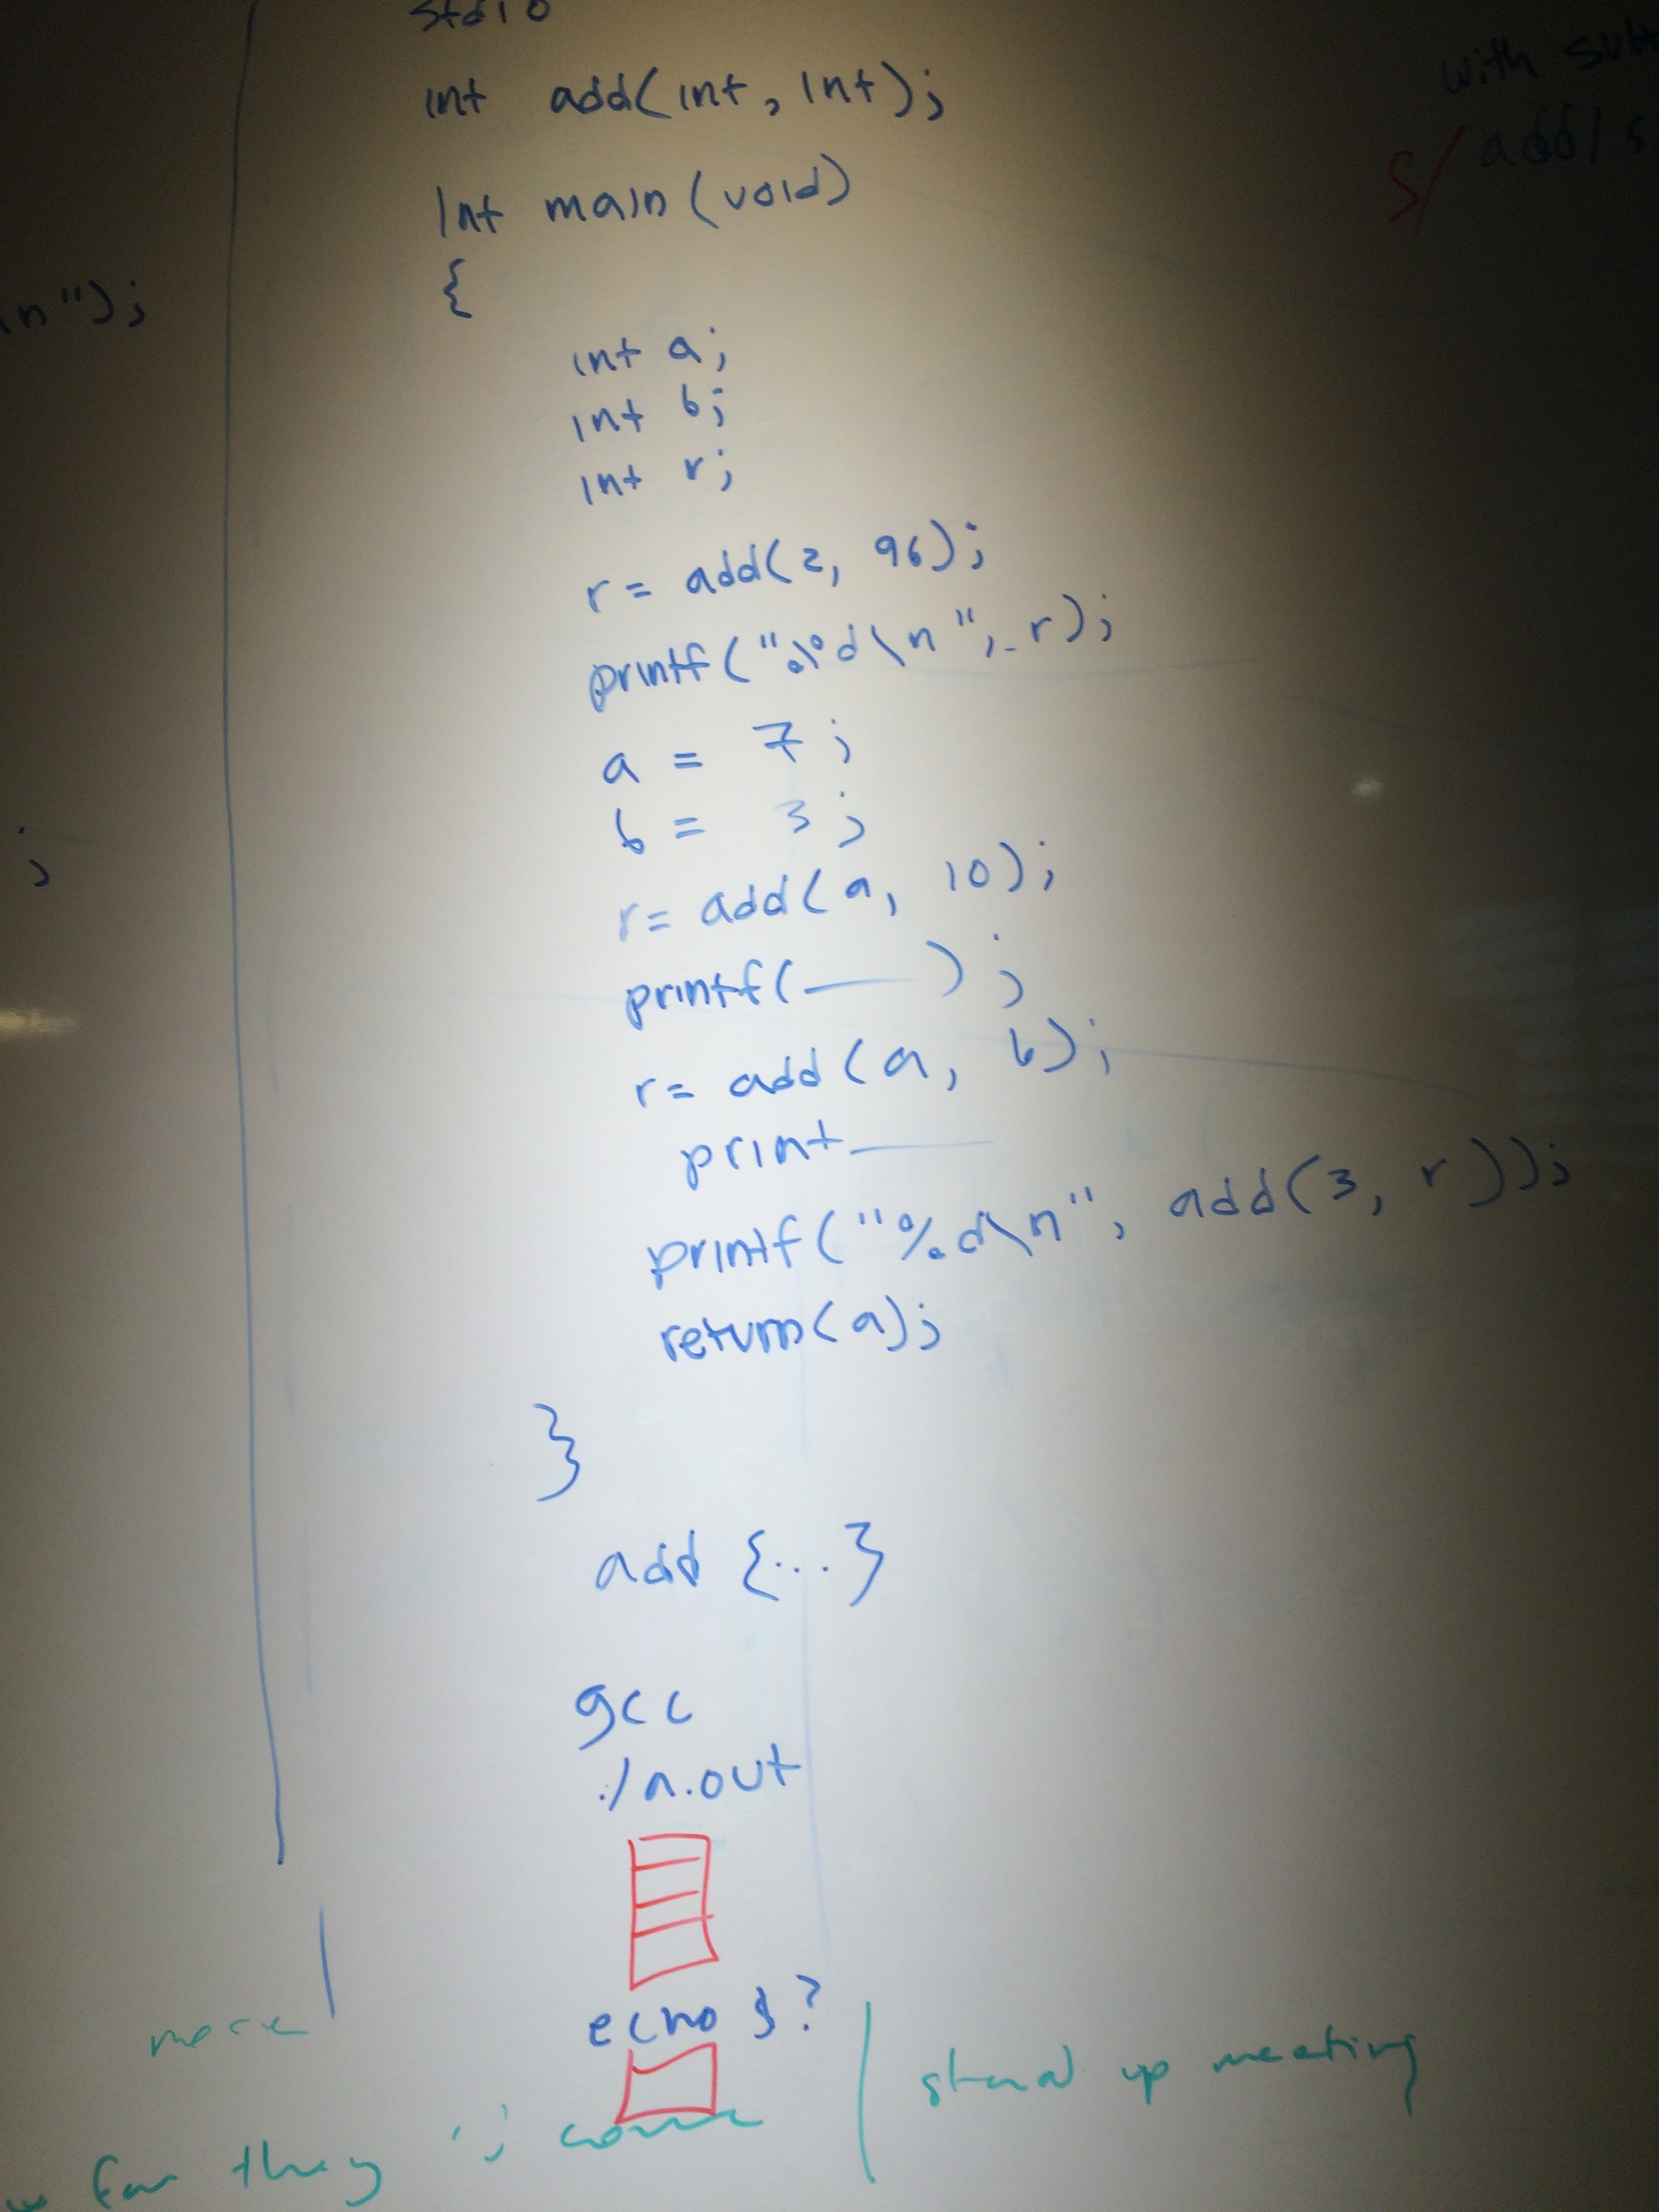 stdio
int add(int, int);
int main(void)
{
int a;
int b;
int r;
r = add(2, 96);
printf("%d\n", r);
a = 7;
b = 3;
r = add(a, 10);
printf(—);
r = add(a, b);
print—
printf("%d\n", add(3, r));
return(a);
}
add {...}
gcc
./a.out
echo $?
\n");
;
with
s/add/s
stand up meeting
for they